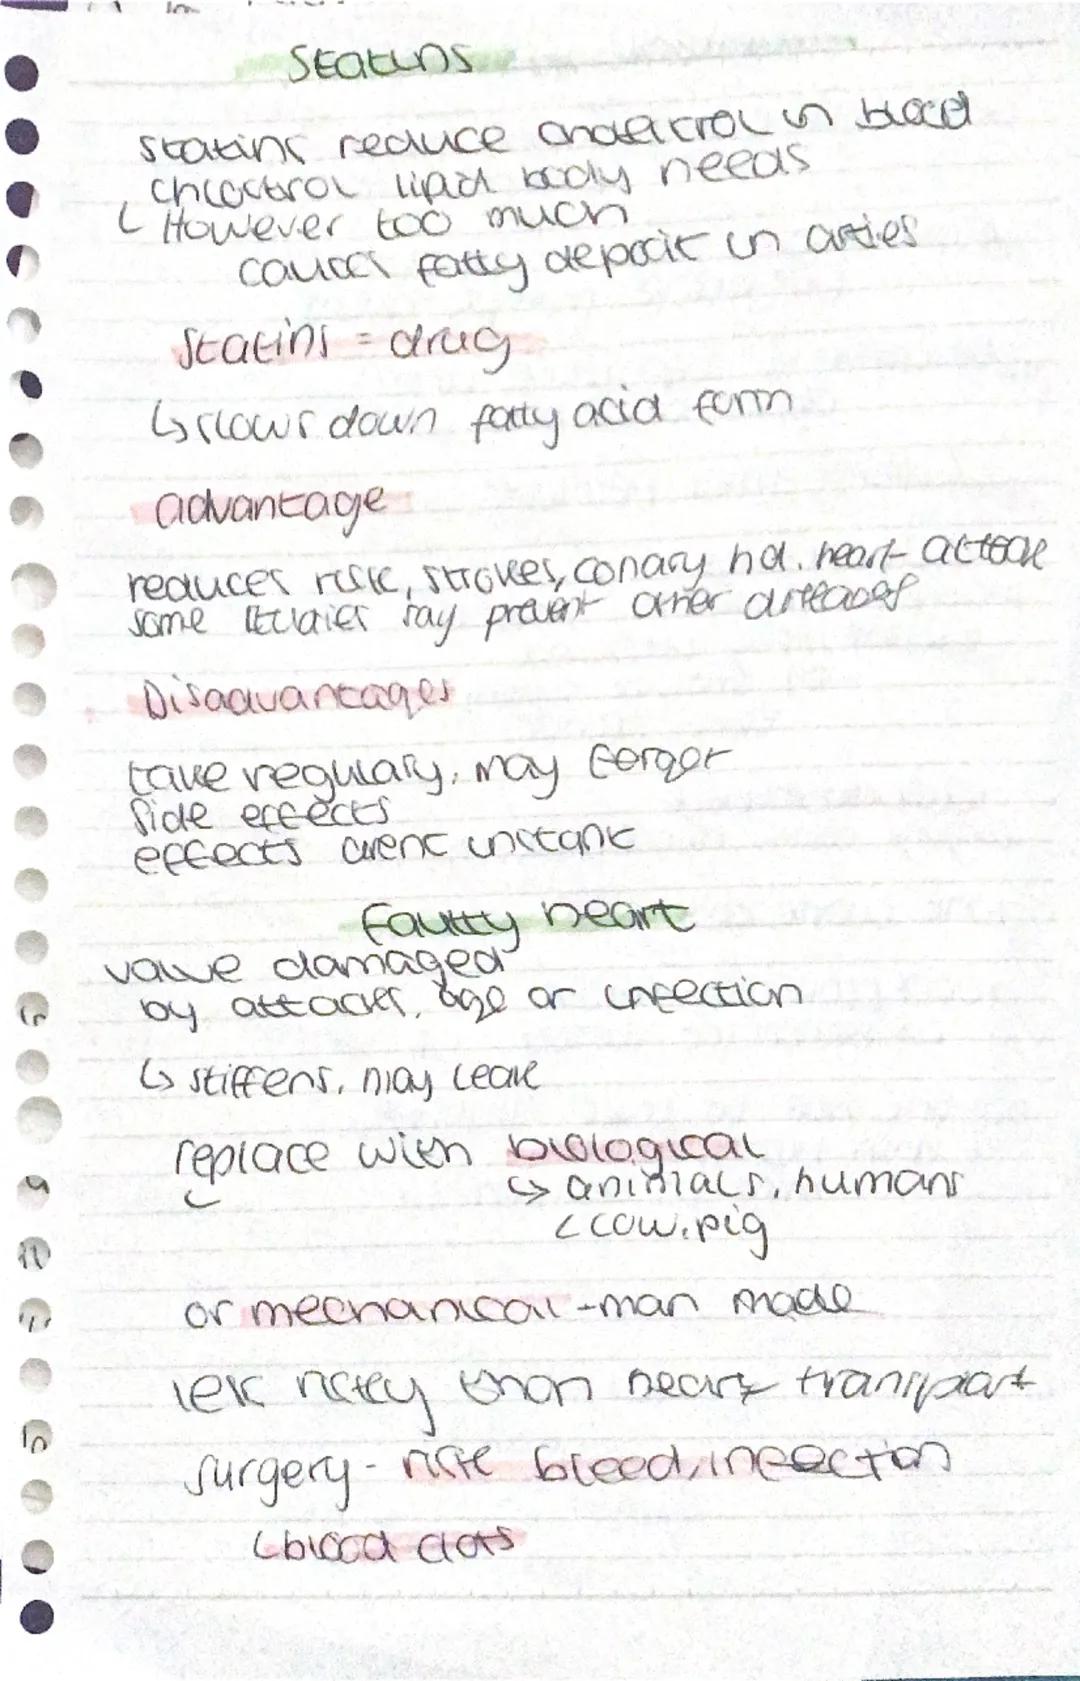 Statins
Statins reduce cholesterol in blood
Chloctrol lipid body needs
However too much
causes fatty deposit in arties
Statins = drug
↳ slows down fatty acid form
advantage
reduces risk, strokes, conary hd. heart attack
some studies say prevent other diseases
Disadvantages
take regulary. may forget
Side effects
effects arent instant
Faulty heart
valve damaged
by attacks, age or infection
↳ stiffens. may leak
replace with biological
↳ animals, humans
cow. pig
or mechanical - man made
less risky than heart transpart
surgery - risk bleed, infection
blood clots